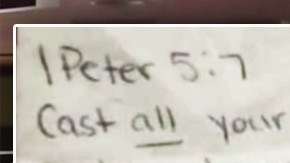 1 Peter 5:7
Cast all your